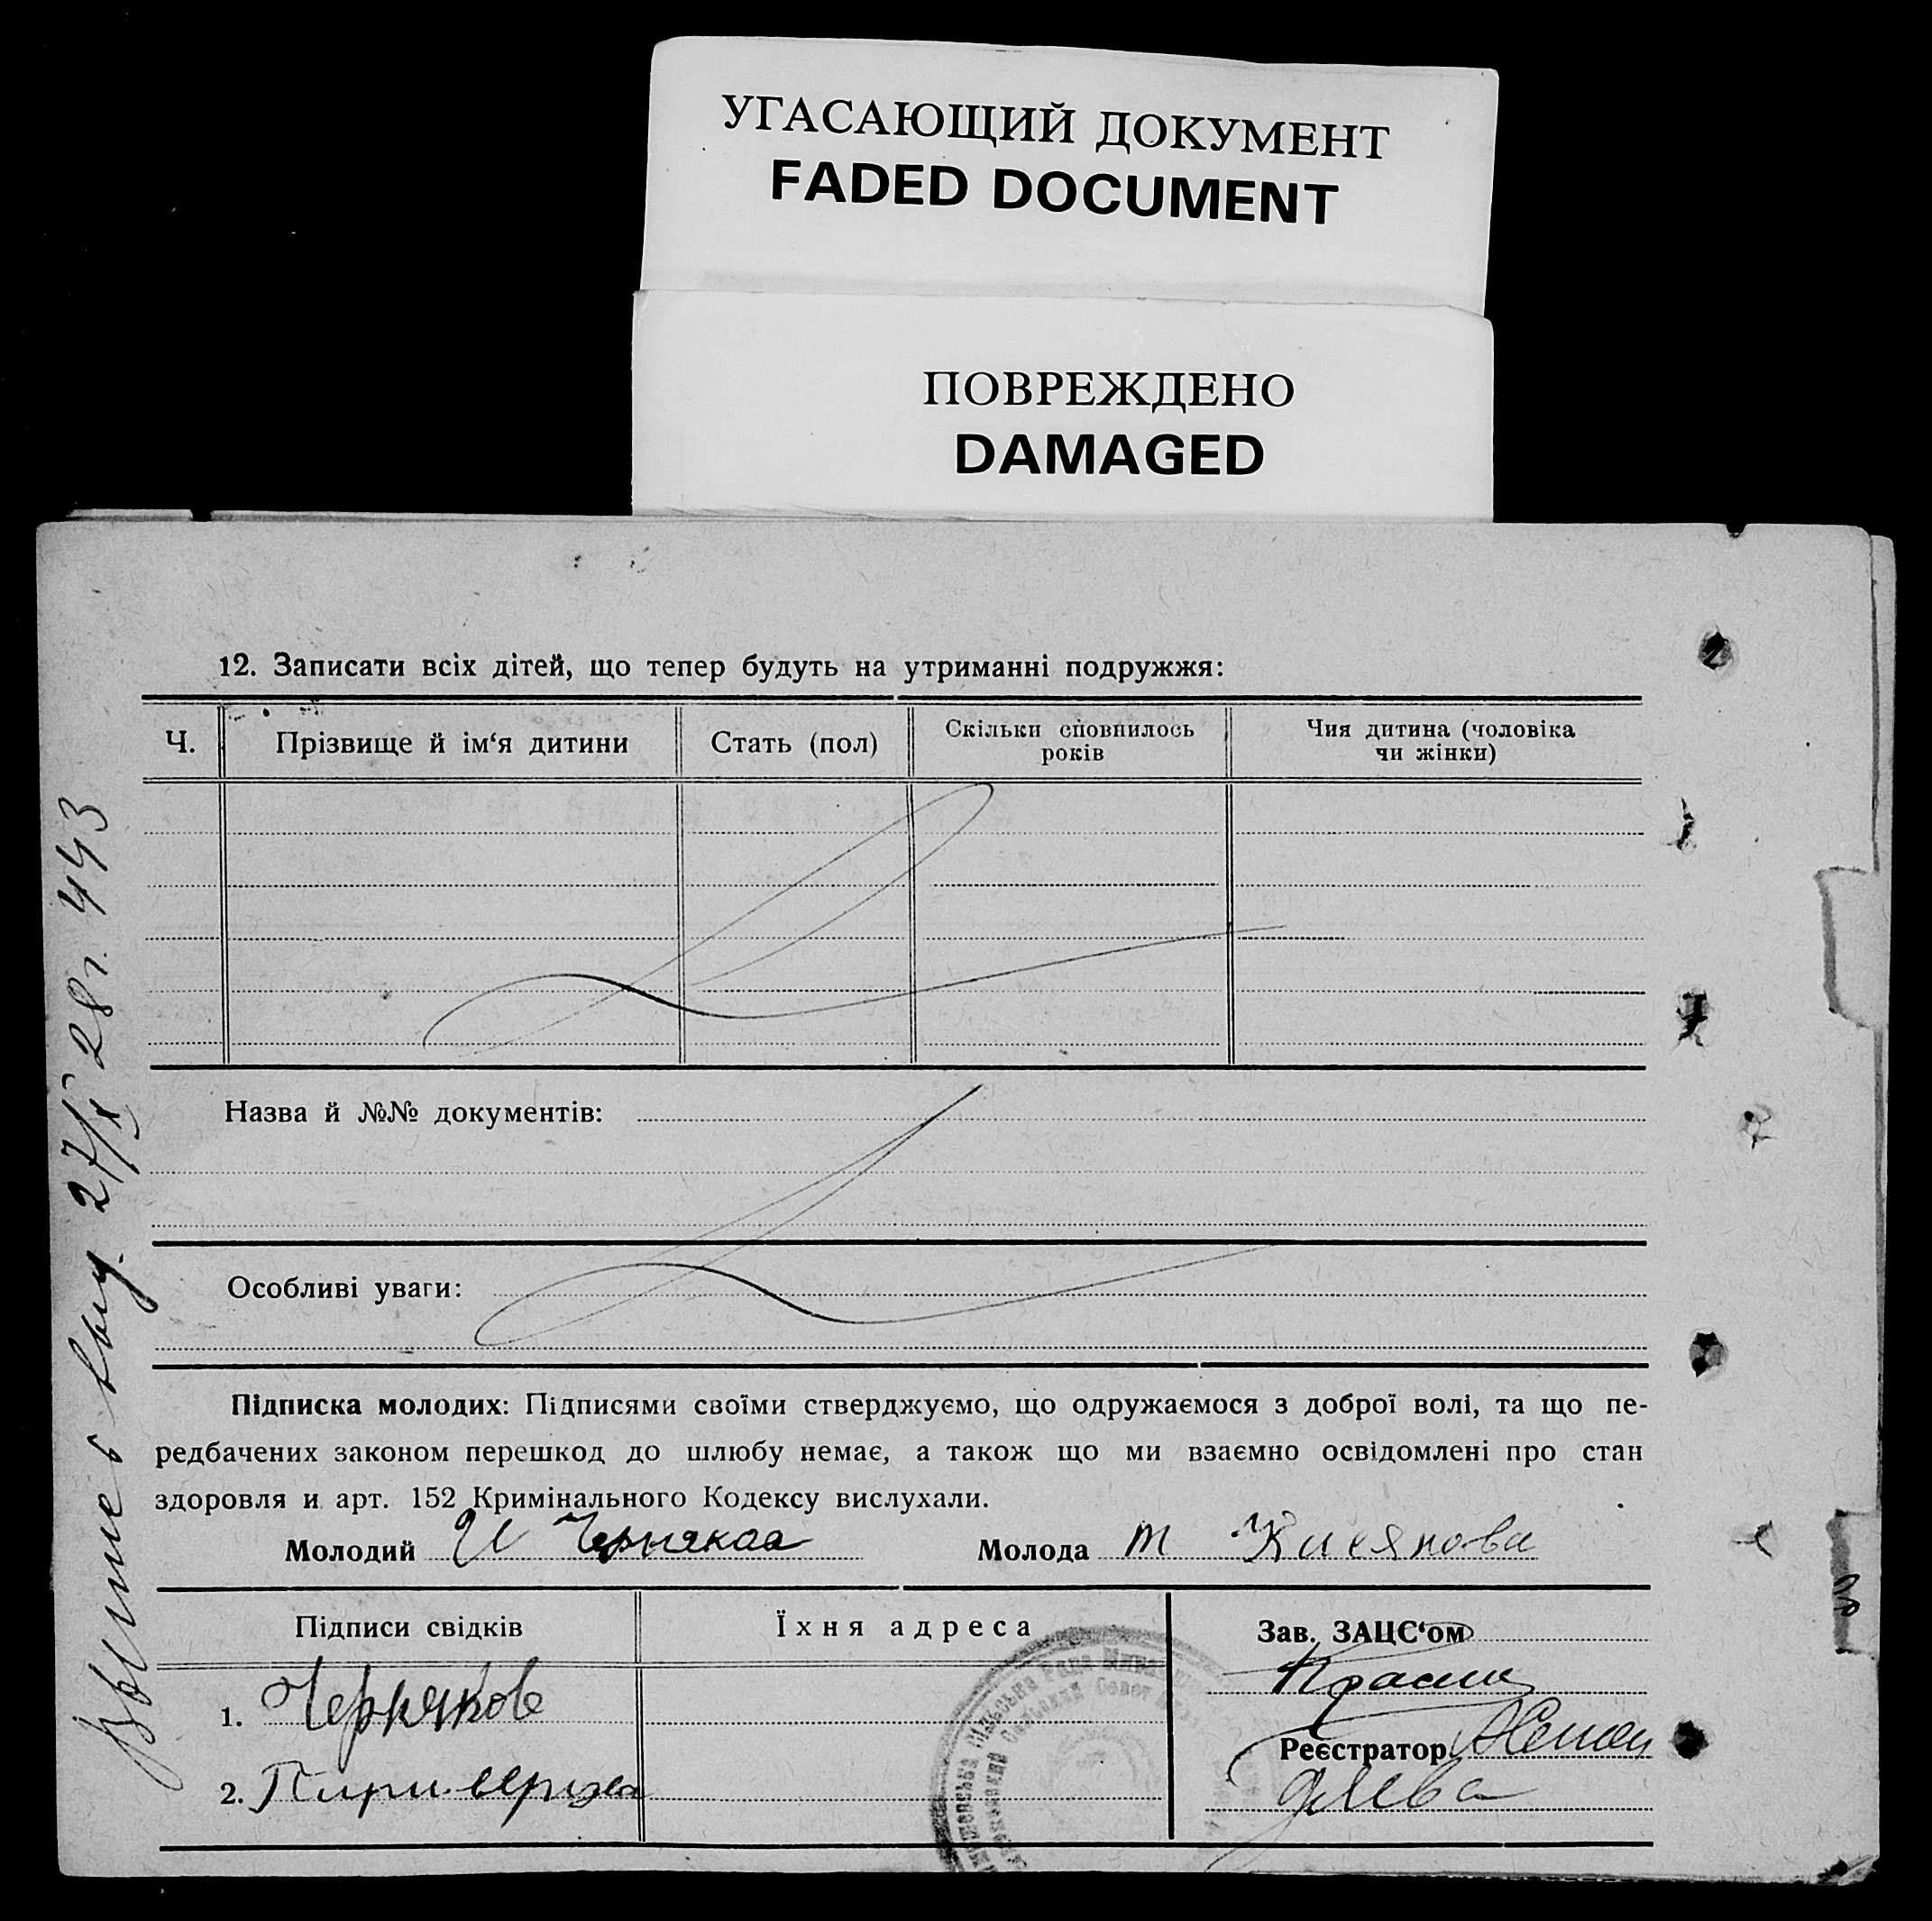 УГАСАЮЩИЙ ДОКУМЕНТ
FADED DOCUMENT
ПОВРЕЖДЕНО
DAMAGED
12. Записати всіх дітей, що тепер будуть на утриманні подружжя:
Ч.
Прізвище й ім‘я дитини
Стать (пол)
Скільки сповнилось
років
Чия дитина (чоловіка
чи жінки)
Назва й №№ документів:
Особливі уваги:
Підписка молодих: Підписями своїми стверджуємо, що одружаємося з доброї волі, та що пе-
редбачених законом перешкод до шлюбу немає, а також що ми взаємно освідомлені про стан
здоровля и арт. 152 Кримінального Кодексу вислухали.
Молодий И Черняков Молода т
Підписи свідків
Їхня адреса
Зав. ЗАЦС‘ом
1. Черняков
Реєстратор
2.
28 г. 443